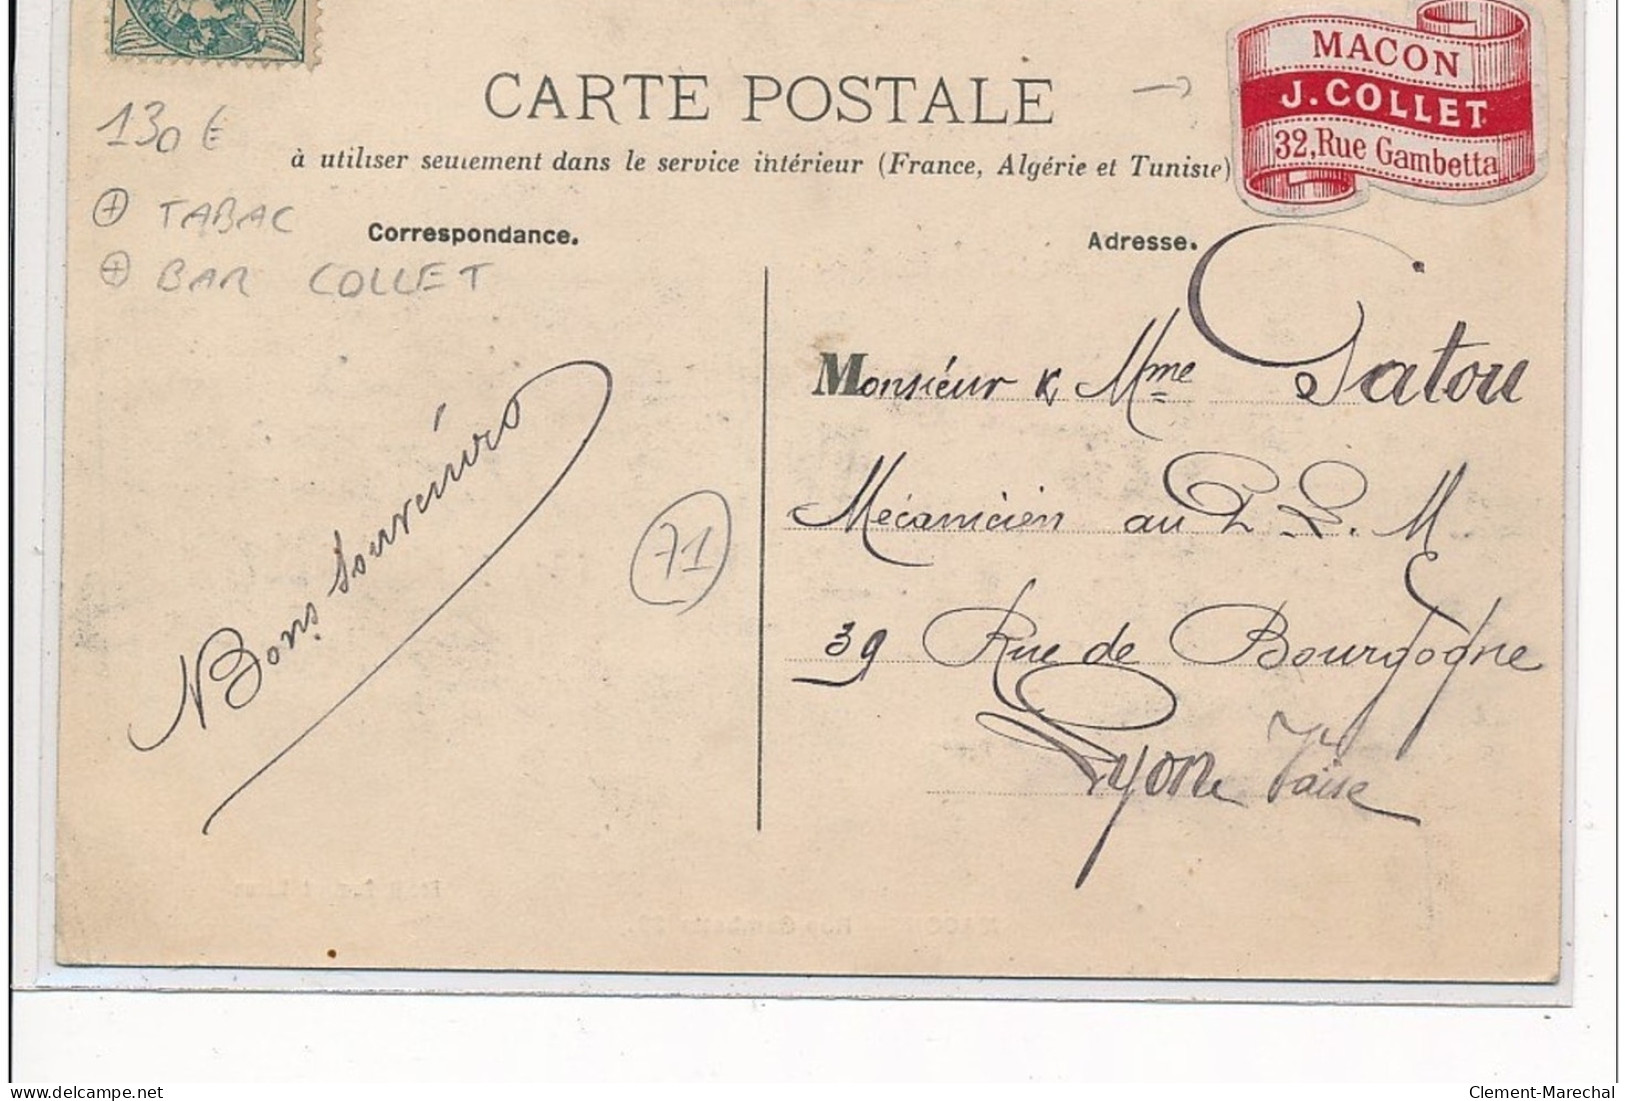 MACON
J. COLLET
32, Rue Gambetta
CARTE POSTALE
130 €
à utiliser seulement dans le service intérieur (France, Algérie et Tunisie)
⊕ TABAC
Correspondance.
Adresse.
⊕ BAR COLLET
Monsieur & Mme Gatou
Mécanicien au P. L. M
39 Rue de Bourgogne
Lyon Vaise
Bons Souvenirs
71
delcampe.net
Clement-Marechal